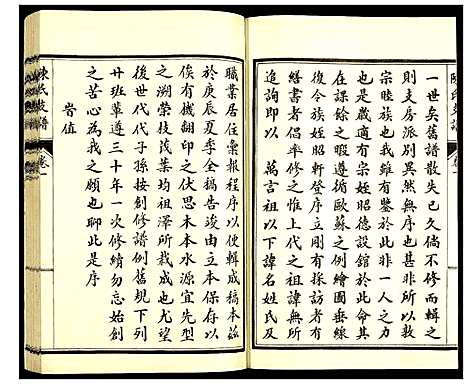 一世矣舊譜散失已久倘不修而輯之
則支房派別異然無序也甚非所以敦
宗睦族也爰有宗姪昭德設館於此命其
在課餘之暇遵循歐蘇之例繪圖垂線
是歲適有宗姪昭登序立剛有採訪者有
後令族姪
繕書者助修學生惟上代之祖諱無
追詢即以 萬言祖以下諱名姓氏及
職業居住彙報程序以便輯成稿本茲
於庚辰夏季全稿告竣由立本
俟有機翻印之伏思木本水源宜先型
之溯榮枝茂葉均祖澤所栽成也尤望
後世代代子孫按創修譜例舊規下列
廿班輩遵三十年一次修續勿忘始創
之苦心為我之願也聊此是序
旹值
陳氏支譜
卷一